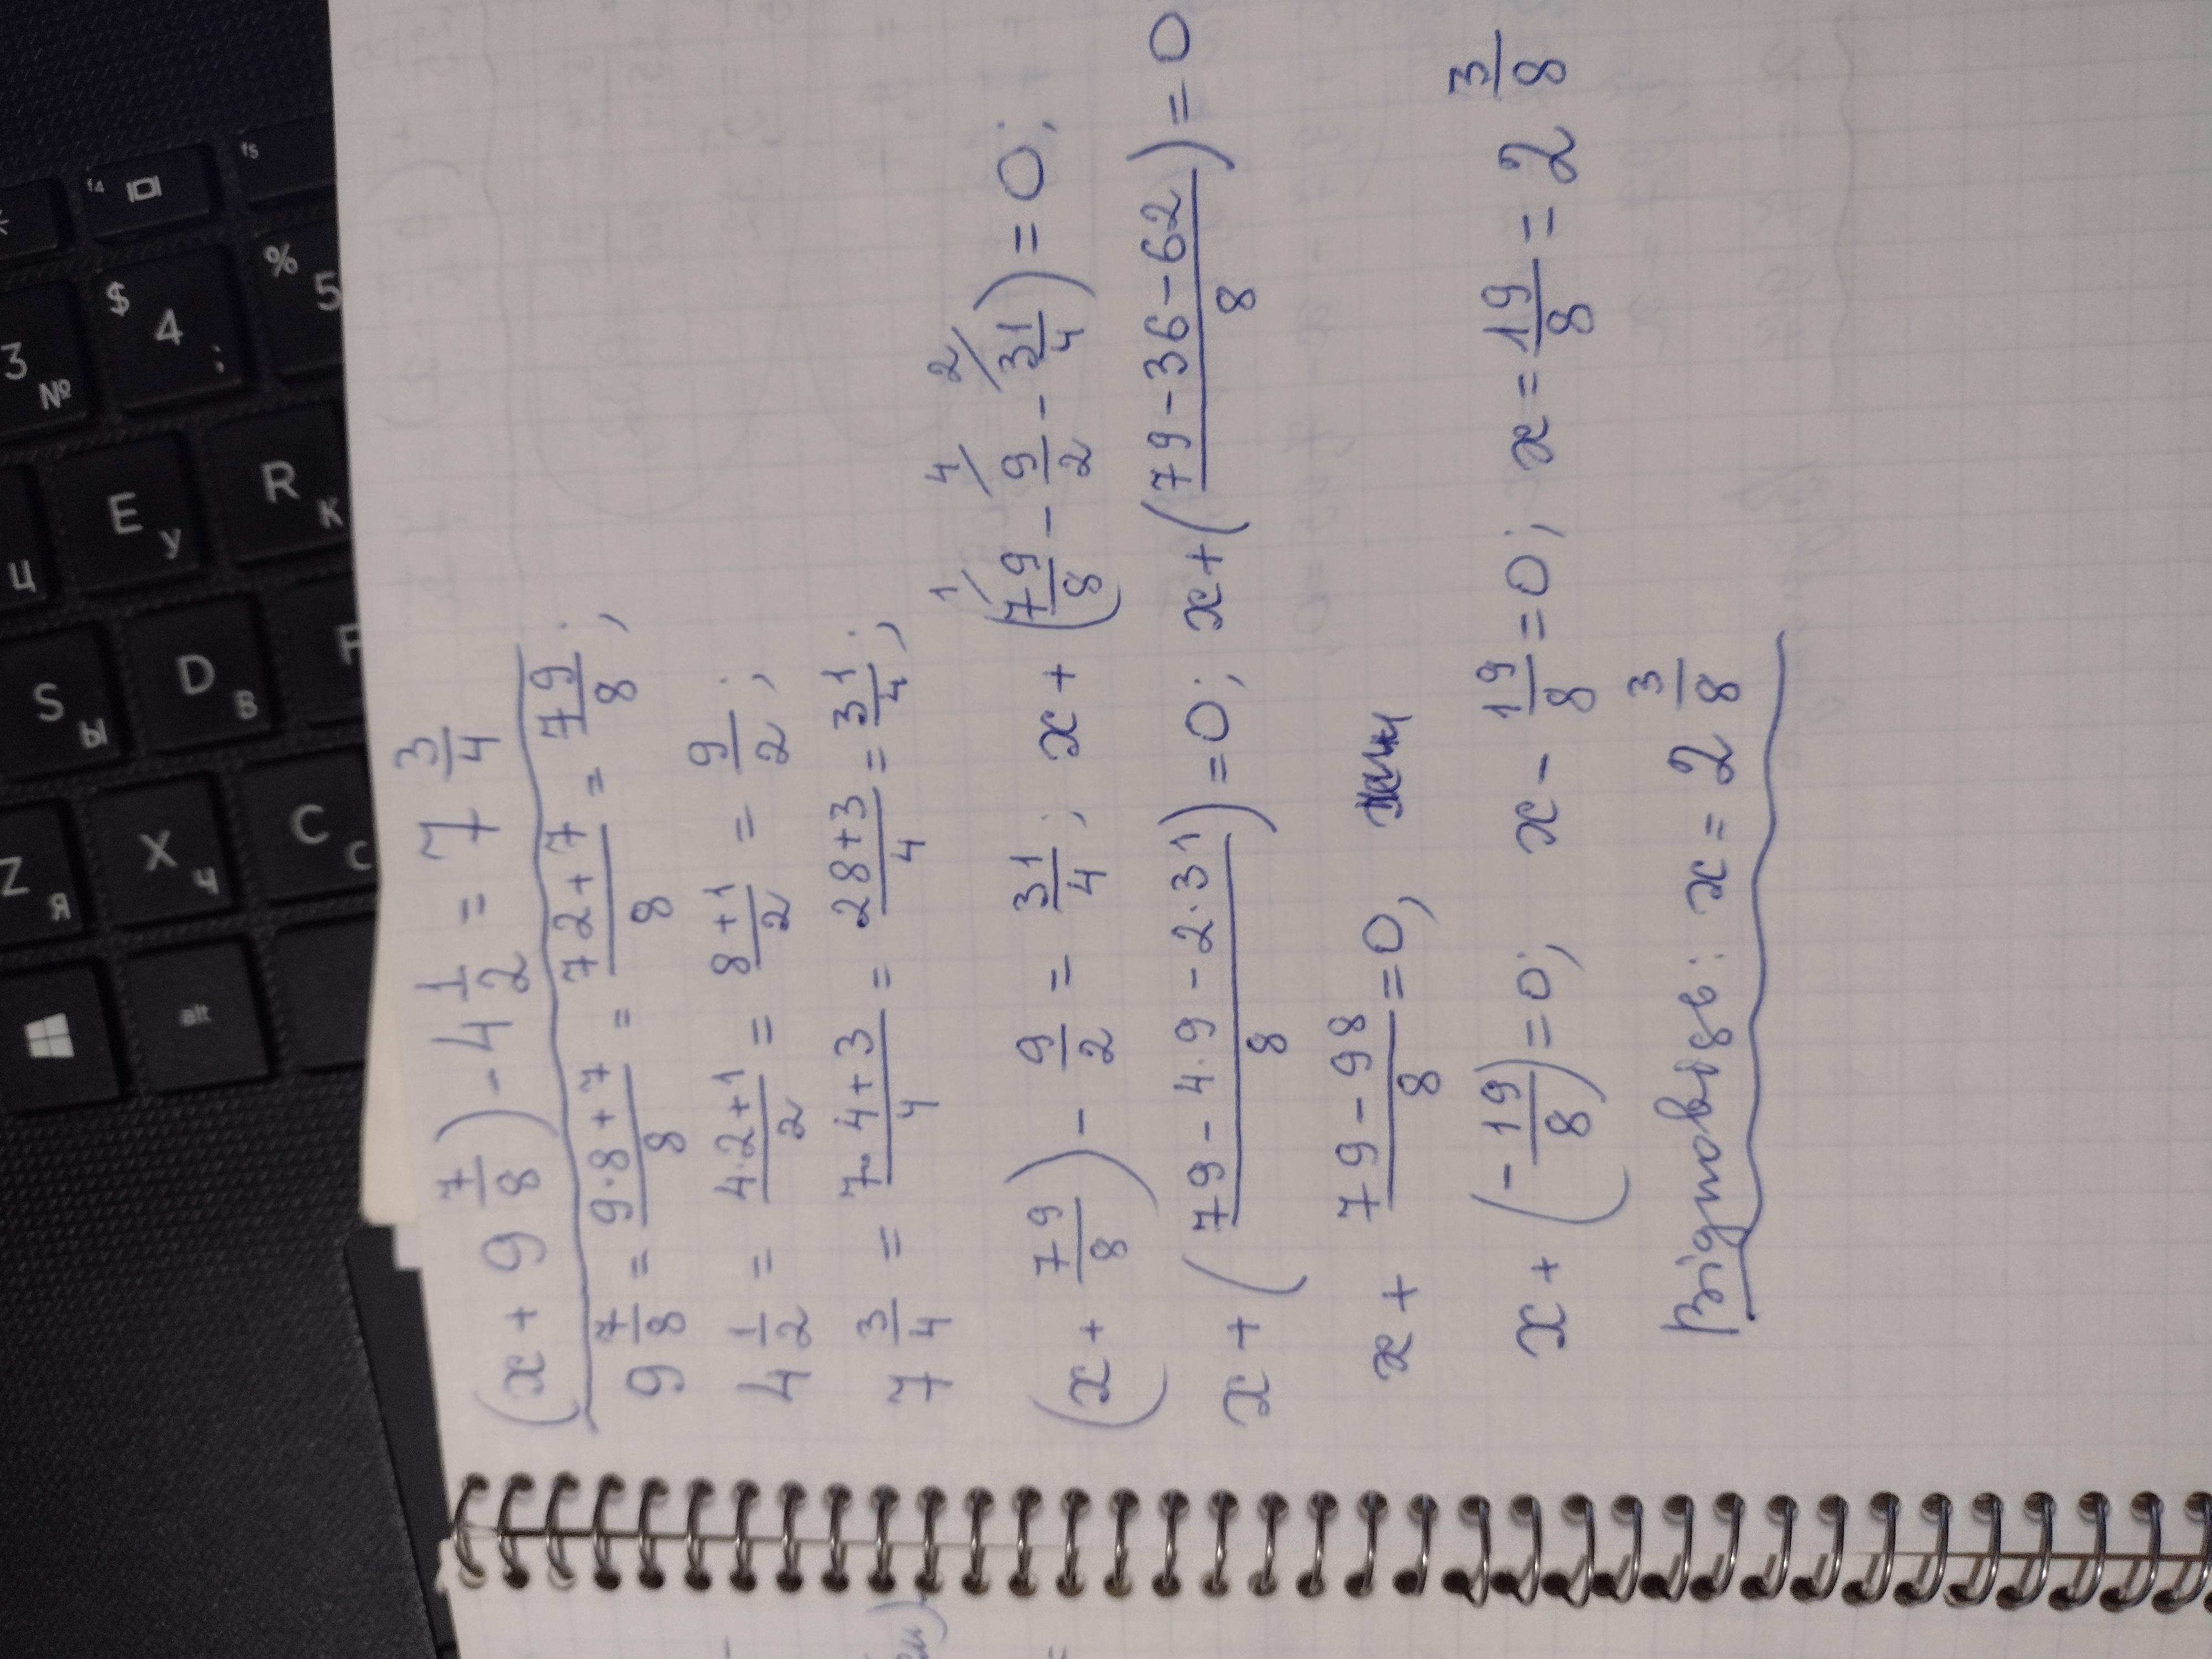 (x + 9 7/8) - 4 1/2 = 7 3/4
9 7/8 = (9·8+7)/8 = (72+7)/8 = 79/8;
4 1/2 = (4·2+1)/2 = (8+1)/2 = 9/2;
7 3/4 = (7·4+3)/4 = (28+3)/4 = 31/4;
(x + 79/8) - 9/2 = 31/4; x + (1/ 79/8 - 4/ 9/2 - 2/ 31/4) = 0;
x + ((79 - 4·9 - 2·31)/8) = 0; x + ((79 - 36 - 62)/8) = 0
x + (79 - 98)/8 = 0;
x + (-19/8) = 0; x - 19/8 = 0; x = 19/8 = 2 3/8
Відповідь: x = 2 3/8
3 №
$ 4 ;
% 5
f4
f5
Ц
E У
R К
S Ы
D В
F
Z Я
X Ч
C С
alt